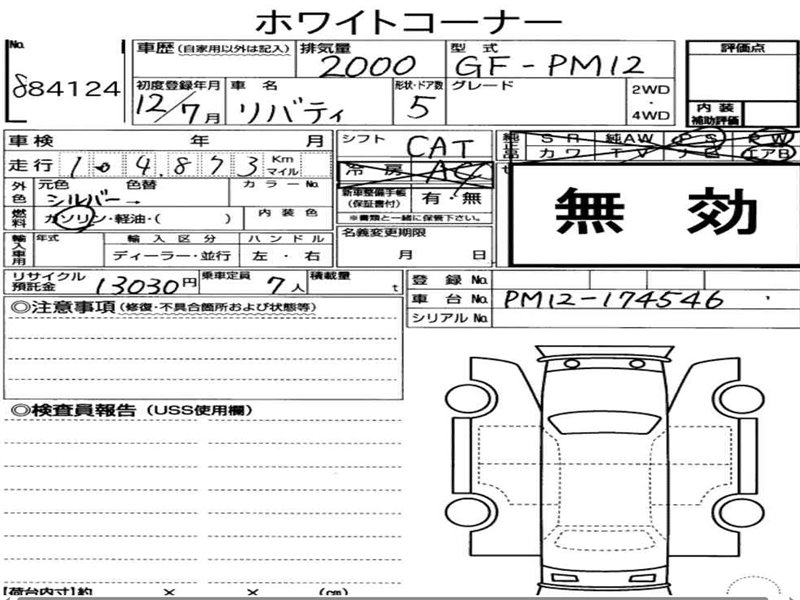 ホワイトコーナー
No.
84124
車歴 (自家用以外は記入)
排気量
2000
型式
GF-PM12
評価点
内装
補助評価
初度登録年月
12/7月
車名
リバティ
形状・ドア数
5
グレード
2WD
・
4WD
車検 年 月
シフト
CAT
純正品
SR 純AW PS PW
カワ TV ナビ エアB
走行
1 4.873
Km
マイル
冷房
AC
外色
元色 色替
シルバー→
カラーNo.
新車整備手帳
(保証書付)
有・無
※書類と一緒に保管下さい。
燃料
ガソリン・軽油・( )
内装色
無効
輸入車用
年式
輸入区分
ディーラー・並行
ハンドル
左・右
名義変更期限
月 日
リサイクル
預託金
13030円
乗車定員
7人
積載量
t
登録No.
車台No.
PM12-174546
シリアルNo.
◎注意事項 (修復・不具合箇所および状態等)
◎検査員報告 (USS使用欄)
【荷台内寸】約 × × (cm)